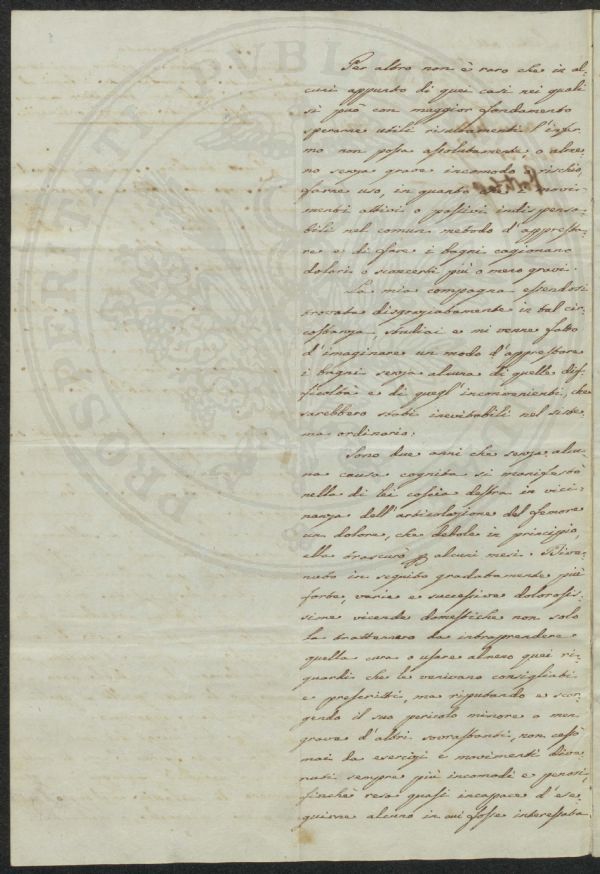 Per altro non è raro che in al-
cuni appunto di quei casi nei quali
si può con maggior fondamento
sperarne utili risultamenti l'infer-
mo non possa assolutamente, o alme-
no senza grave incomodo o rischio,
farne uso, in quanto i movi-
menti attivi o passivi indispensa-
bili nel comun metodo d'appresta-
re e di fare i bagni cagionano
dolori o sconcerti più o meno gravi.
La mia compagna essendosi
trovata disgraziatamente in tal cir-
costanza studiai e mi venne fatto
d'imaginare un modo d'apprestare
i bagni senza alcuna di quelle dif-
ficoltà e di quegl'inconvenienti, che
sarebbero stati inevitabili nel siste-
ma ordinario.
Sono due anni che senza alcu-
na causa cognita si manifestò
nella di lei coscia destra in vici-
nanza dell'articolazione del femore
un dolore, che debole in principio,
ella trascurò p alcuni mesi. Dive-
nuto in seguito gradatamente più
forte, varie e successive dolorosis-
sime vicende domestiche non solo
la trattennero da intraprendere
quella cura o usare almeno quei ri-
guardi che le venivano consigliati
e prescritti, ma riputando e scor-
gendo il suo pericolo minore o men
grave d'altri sovrastanti, non cessò
mai da esercizi e movimenti dive-
nuti sempre più incomodi e penosi,
finchè resa quasi incapace d'ese-
guirne alcuno in cui fosse interessata
PROSPERITATI PVBLI